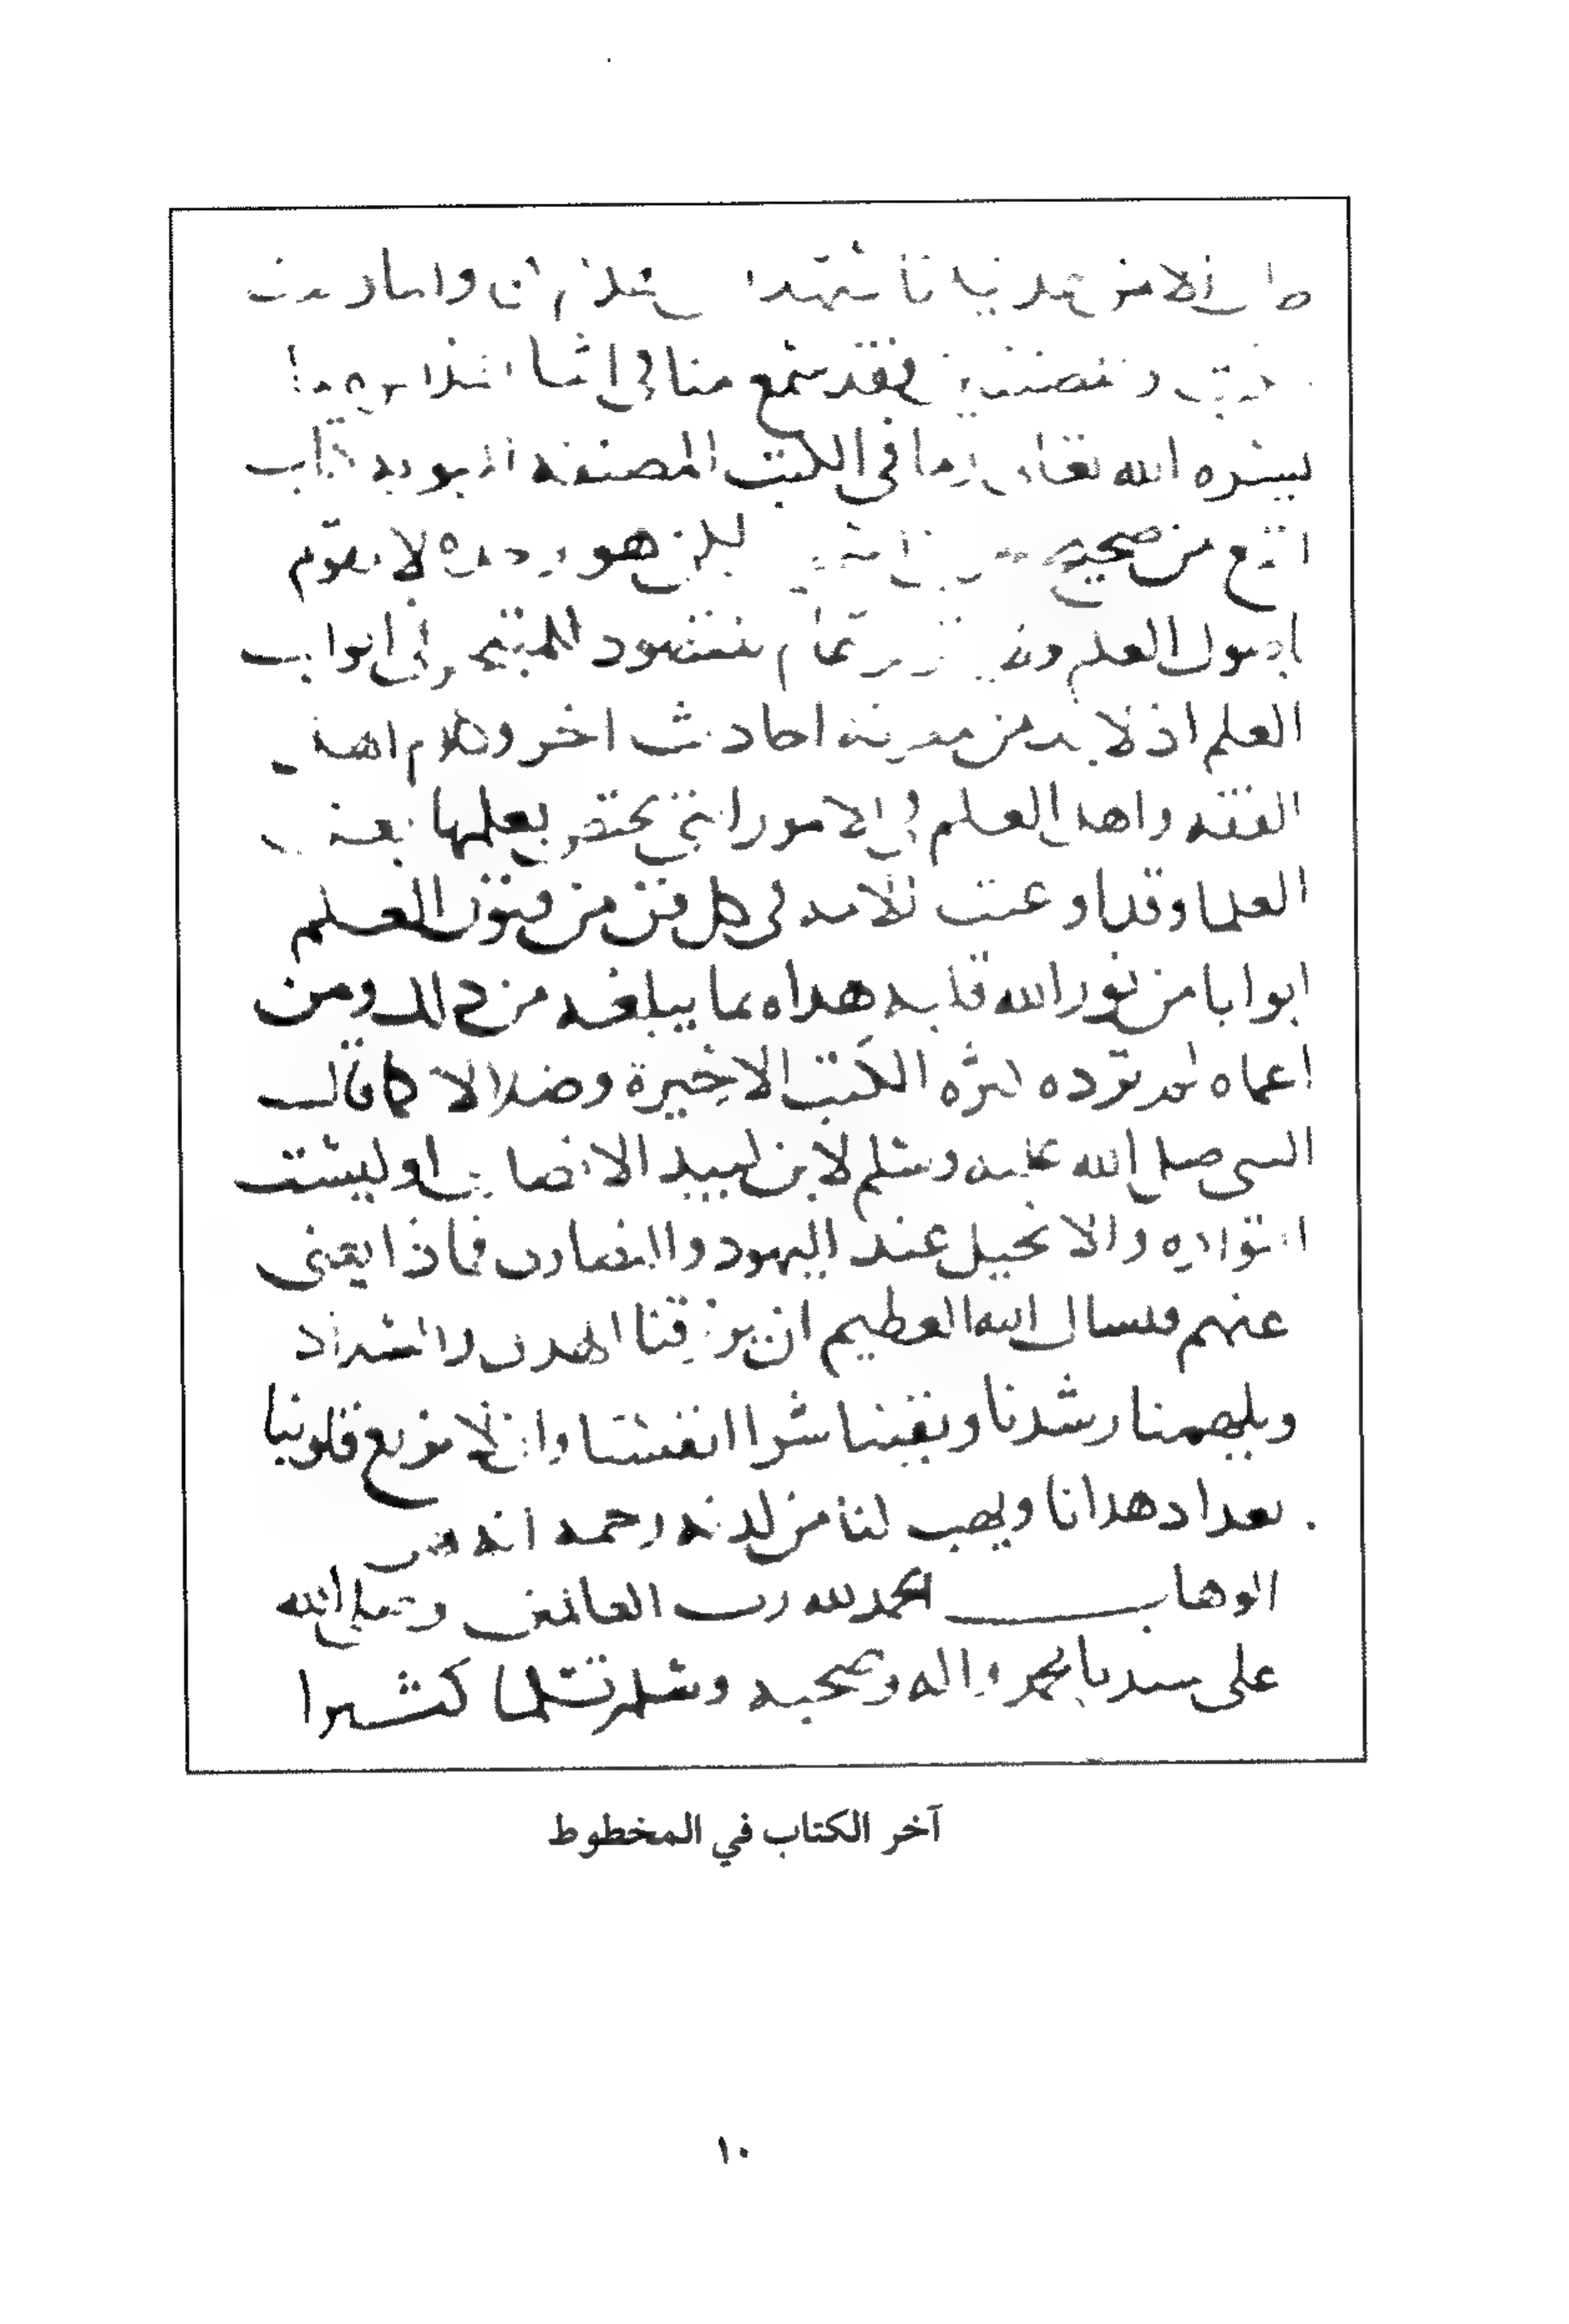 فقد سمع منا في اثنا
يسره الله تعالى وما في الكتب المصنفه المبوبه كتاب
انفع من صحيح لكن هو وحده لا يقوم
باصول العلم تمام مقصود المتبحر في ابواب
العلم اذ لا بد من معرفه احاديث اخر وكلام اهل
الفقه واهل العلم في الامور التي يختص بعلمها بعض
العلما وقد اوعبت الامه في كل فن من فنون العلم
ابوابا من نور الله قلبه هداه بما يبلغه من ذلك ومن
اعماه لم تزده كثره الكتب الا خيرة وضلالا كما قال
النبي صلى الله عليه وسلم لابن لبيد الانصاري اوليست
التوراه والانجيل عند اليهود والنصارى فماذا يغني
عنهم فنسال الله العظيم ان يرزقنا الهدى والسداد
ويلهمنا رشدنا ويقينا شر انفسنا وان لا يزيغ قلوبنا
بعد اذ هدانا ويهب لنا من لدنه رحمه انه هو
الوهاب الحمد لله رب العالمين وصلى الله
على سيدنا محمد واله وصحبه وسلم تسليما كثيرا
آخر الكتاب في المخطوط
١٠